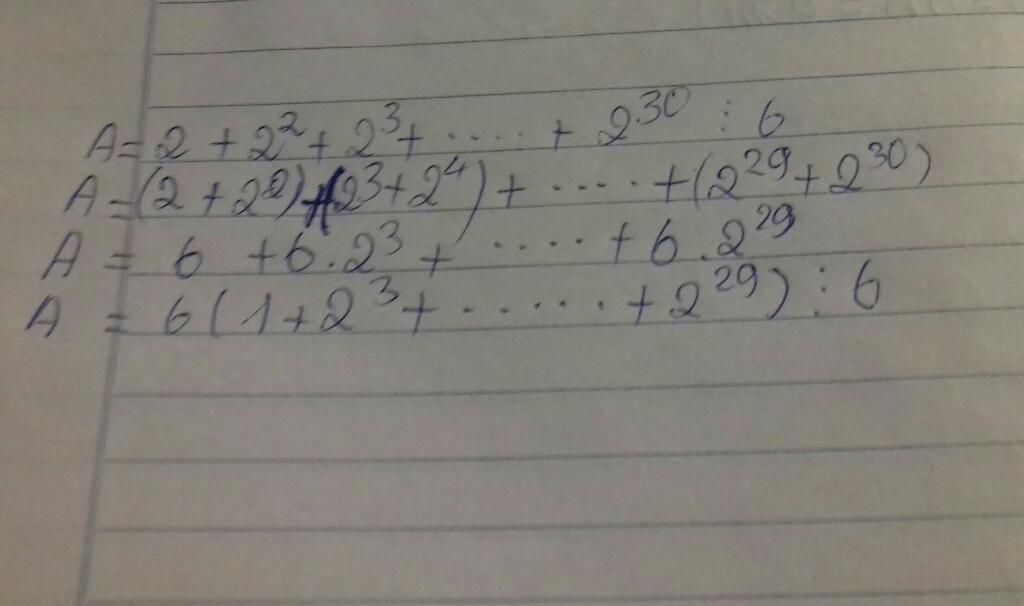 A = 2 + 2² + 2³ + ..... + 2³⁰ ⋮ 6
A = (2 + 2²) + (2³ + 2⁴) + ..... + (2²⁹ + 2³⁰)
A = 6 + 6.2³ + ..... + 6.2²⁹
A = 6 (1 + 2³ + ...... + 2²⁹) ⋮ 6